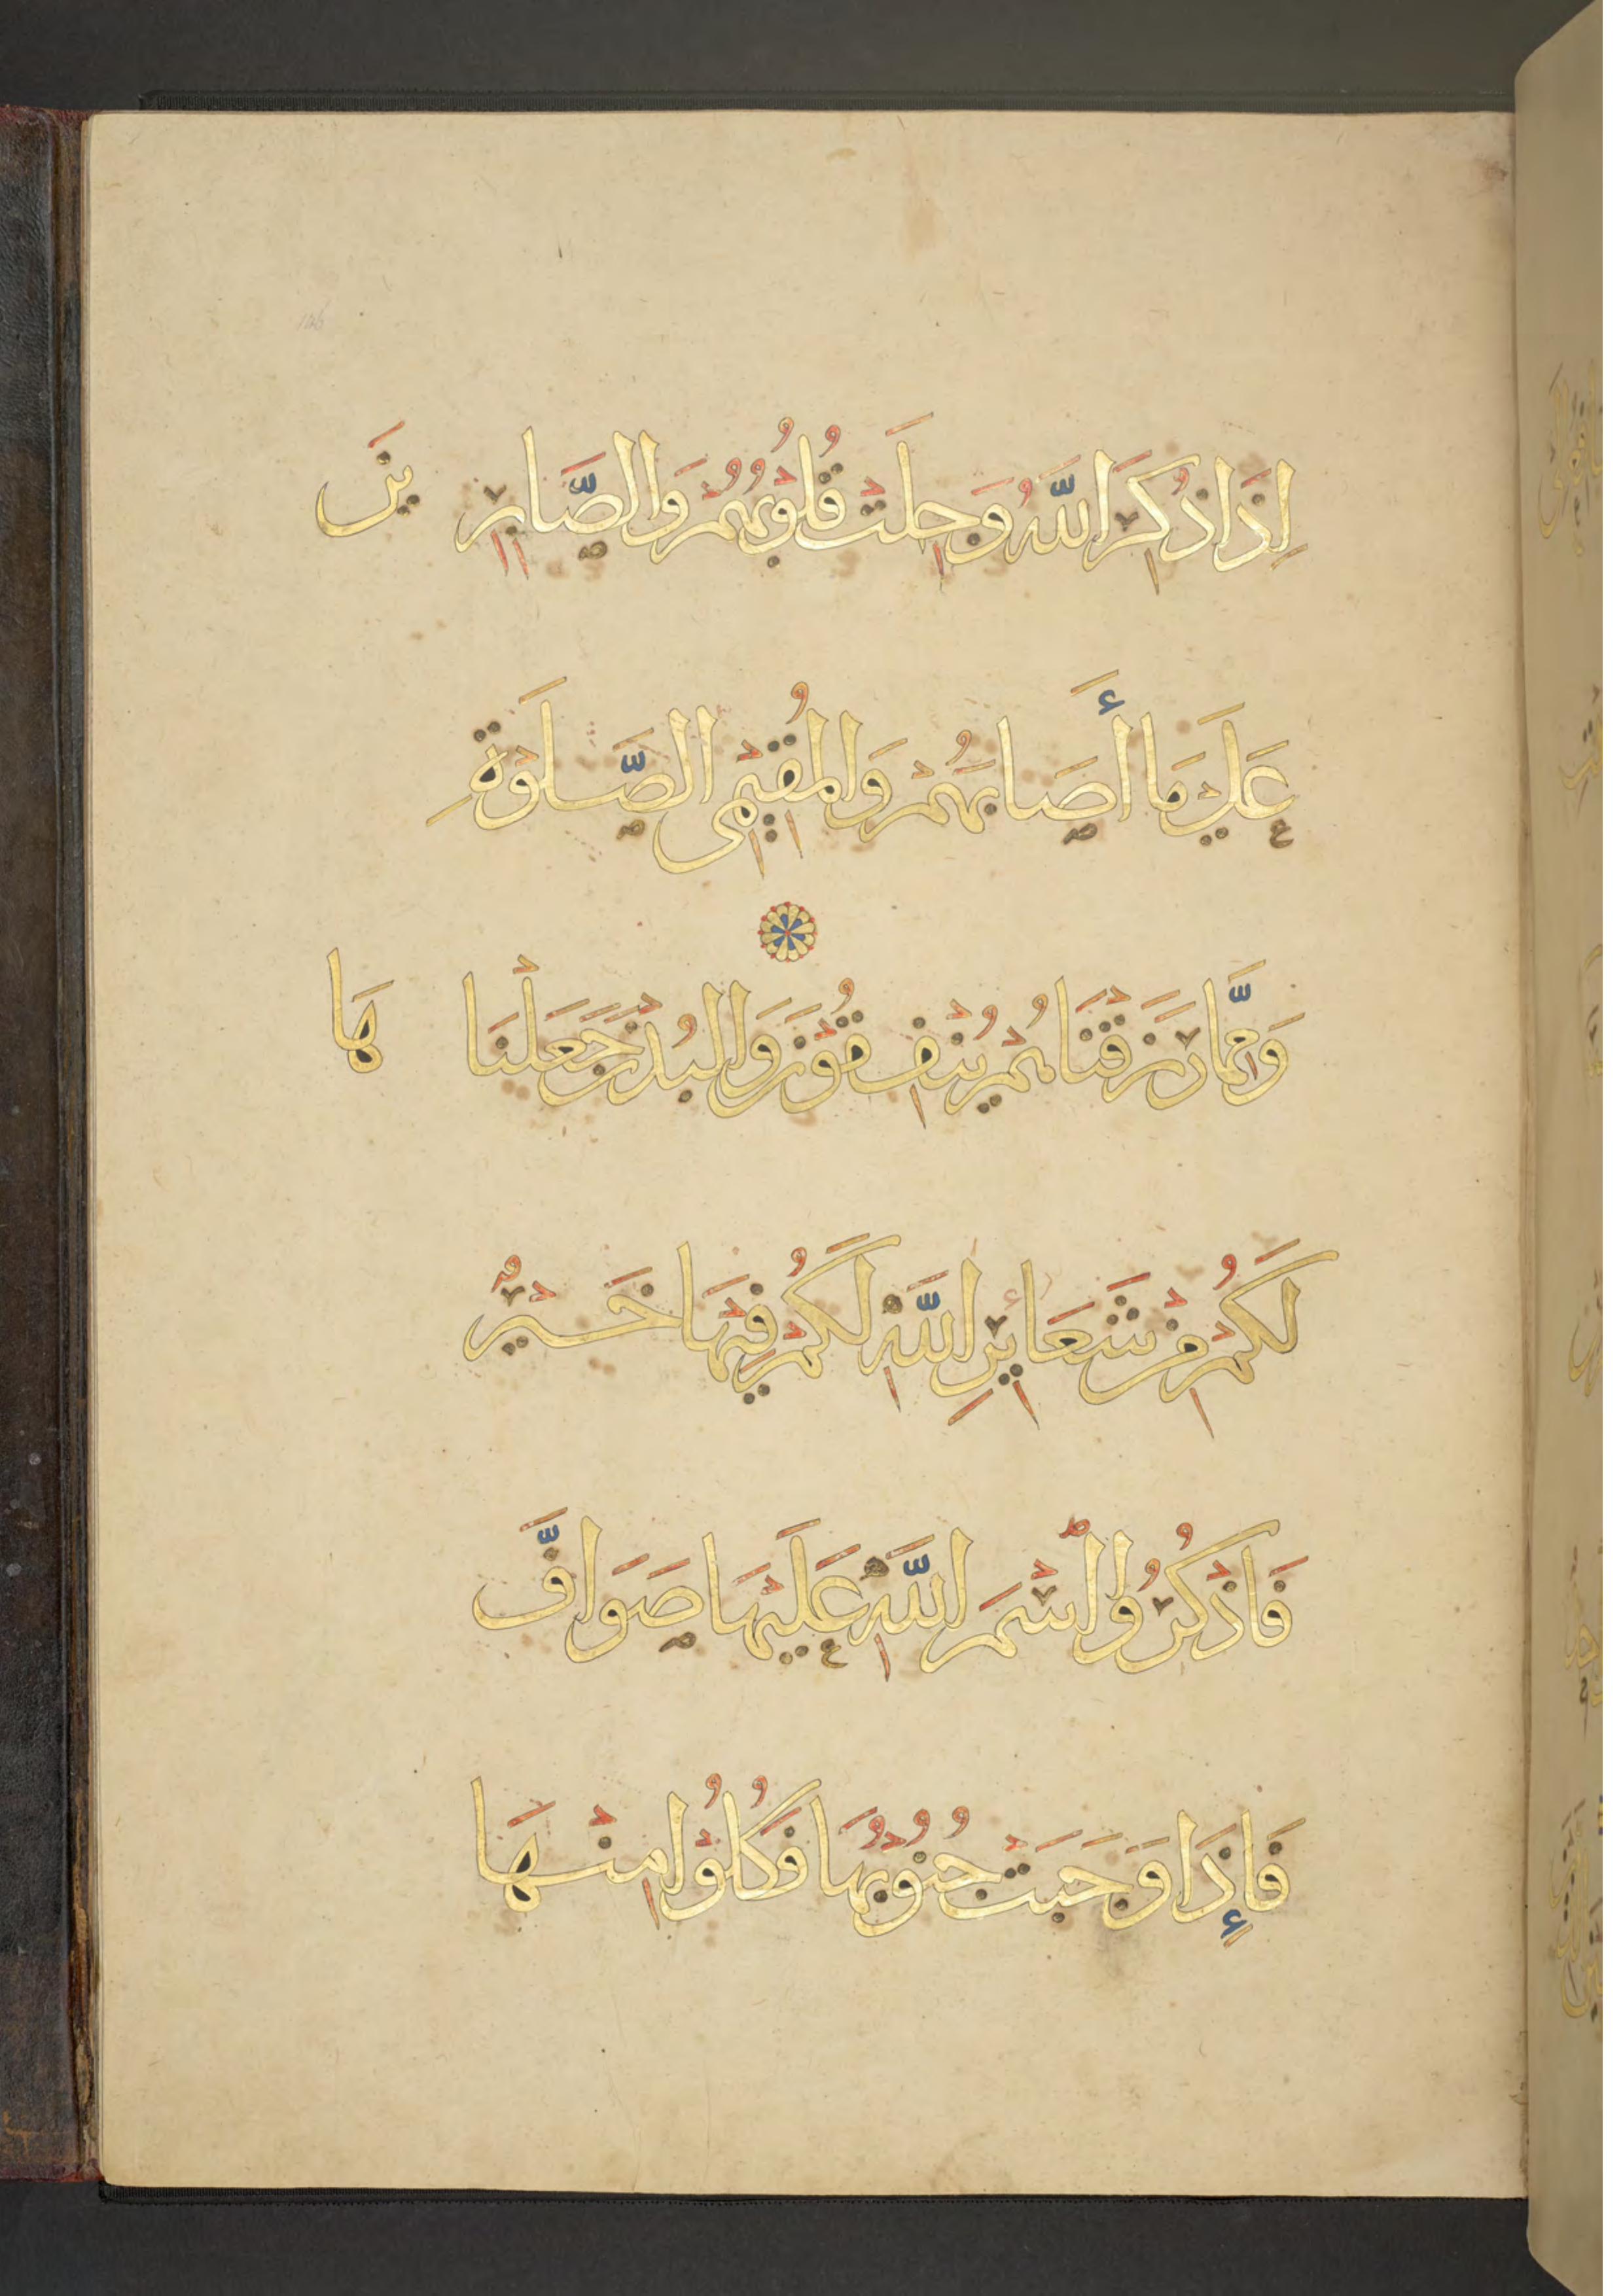 إِذَا ذُكِرَ اللَّهُ وَجِلَتْ قُلُوبُهُمْ وَالصَّابِرِينَ
عَلَىٰ مَا أَصَابَهُمْ وَالْمُقِيمِي الصَّلَوٰةِ
وَمِمَّا رَزَقْنَاهُمْ يُنْفِقُونَ وَالْبُدْنَ جَعَلْنَاهَا
لَكُمْ مِنْ شَعَائِرِ اللَّهِ لَكُمْ فِيهَا خَيْرٌ
فَاذْكُرُوا اسْمَ اللَّهِ عَلَيْهَا صَوَافَّ
فَإِذَا وَجَبَتْ جُنُوبُهَا فَكُلُوا مِنْهَا